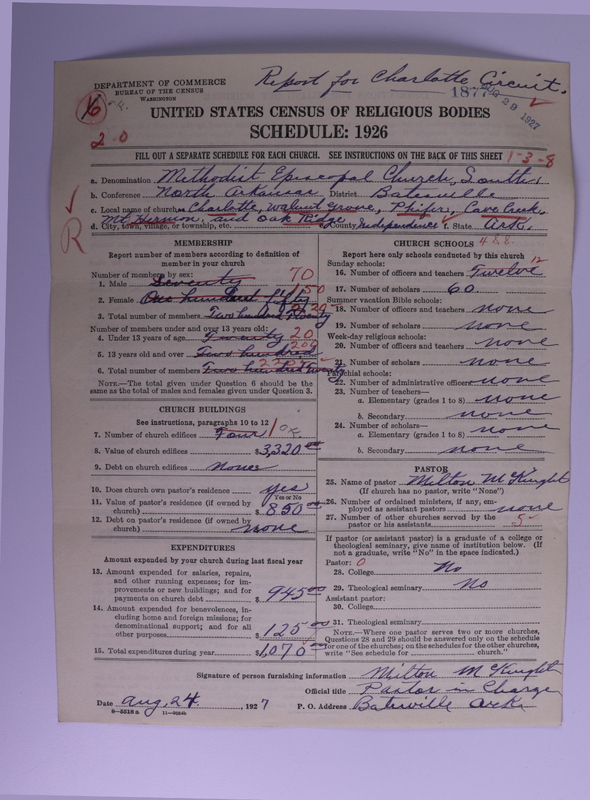 Report for Charlotte Circuit.
DEPARTMENT OF COMMERCE
BUREAU OF THE CENSUS
WASHINGTON
1877
AUG 29 1927
6 O.K.
UNITED STATES CENSUS OF RELIGIOUS BODIES
SCHEDULE: 1926
2-0
FILL OUT A SEPARATE SCHEDULE FOR EACH CHURCH. SEE INSTRUCTIONS ON THE BACK OF THIS SHEET
1-3-8
a. Denomination Methodist Episcopal Church, South.
b. Conference North Arkansas District Batesville
c. Local name of church Charlotte, Walnut Grove, Phifers, Cave Creek,
Mt. Hermon, and Oak Ridge,
d. City, town, village, or township, etc. e. County Independence f. State Ark.
R
MEMBERSHIP
Report number of members according to definition of
member in your church
Number of members by sex:
1. Male Seventy 70
2. Female One hundred fifty 150
3. Total number of members Two hundred twenty 220
Number of members under and over 13 years old:
4. Under 13 years of age Twenty 20
5. 13 years old and over Two hundred 200
6. Total number of members Two hundred twenty 220
NOTE.—The total given under Question 6 should be the
same as the total of males and females given under Question 3.
CHURCH BUILDINGS
See instructions, paragraphs 10 to 12
7. Number of church edifices Four 1 O.K.
8. Value of church edifices $3,320.00
9. Debt on church edifices none
10. Does church own pastor's residence yes
Yes or No
11. Value of pastor's residence (if owned by
church) $850.00
12. Debt on pastor's residence (if owned by
church) none
EXPENDITURES
Amount expended by your church during last fiscal year
13. Amount expended for salaries, repairs,
and other running expenses; for im-
provements or new buildings; and for
payments on church debt $945.00
14. Amount expended for benevolences, in-
cluding home and foreign missions; for
denominational support; and for all
other purposes $125.00
15. Total expenditures during year $1,070
CHURCH SCHOOLS
Report here only schools conducted by this church
Sunday schools:
16. Number of officers and teachers Twelve 12
17. Number of scholars 60.
Summer vacation Bible schools:
18. Number of officers and teachers none
19. Number of scholars none
Week-day religious schools:
20. Number of officers and teachers none
21. Number of scholars none
Parochial schools:
22. Number of administrative officers none
23. Number of teachers—
a. Elementary (grades 1 to 8) none
b. Secondary none
24. Number of scholars—
a. Elementary (grades 1 to 8) none
b. Secondary none
PASTOR
25. Name of pastor Milton McKnight
(If church has no pastor, write "None")
26. Number of ordained ministers, if any, em-
ployed as assistant pastors none
27. Number of other churches served by the
pastor or his assistants 5
If pastor (or assistant pastor) is a graduate of a college or
theological seminary, give name of institution below. (If
not a graduate, write "No" in the space indicated.)
Pastor: 0
28. College No
29. Theological seminary No
Assistant pastor:
30. College
31. Theological seminary
NOTE.—Where one pastor serves two or more churches,
Questions 28 and 29 should be answered only on the schedule
for one of the churches; on the schedules for the other churches,
write "See schedule for church."
Signature of person furnishing information Milton McKnight
Official title Pastor in Charge
Date Aug, 24, 1927 P. O. Address Batesville Ark.
8—5518 a